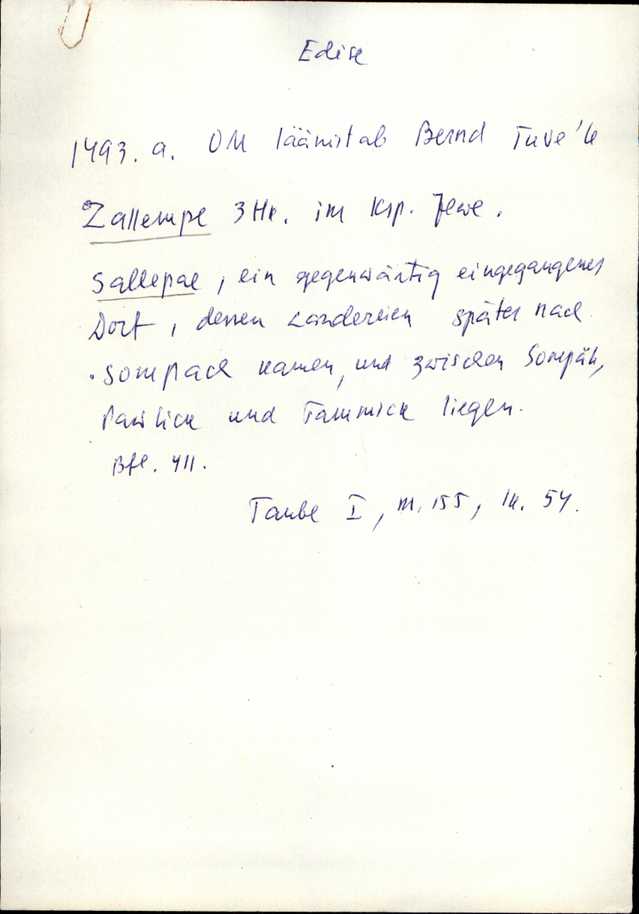 Edise
1493. a. OM läänistab Bernd Tuve'le
Zallempe 3 Hk. im Ksp. Jewe.
Sallepae, ein gegenwärtig eingegangenes
Dorf, deren Ländereien später nach
Sompach kamen, und zwischen Sompäh,
und Tammick liegen.
Bfl. 411.
Taube I, nr. 155, lk. 54.